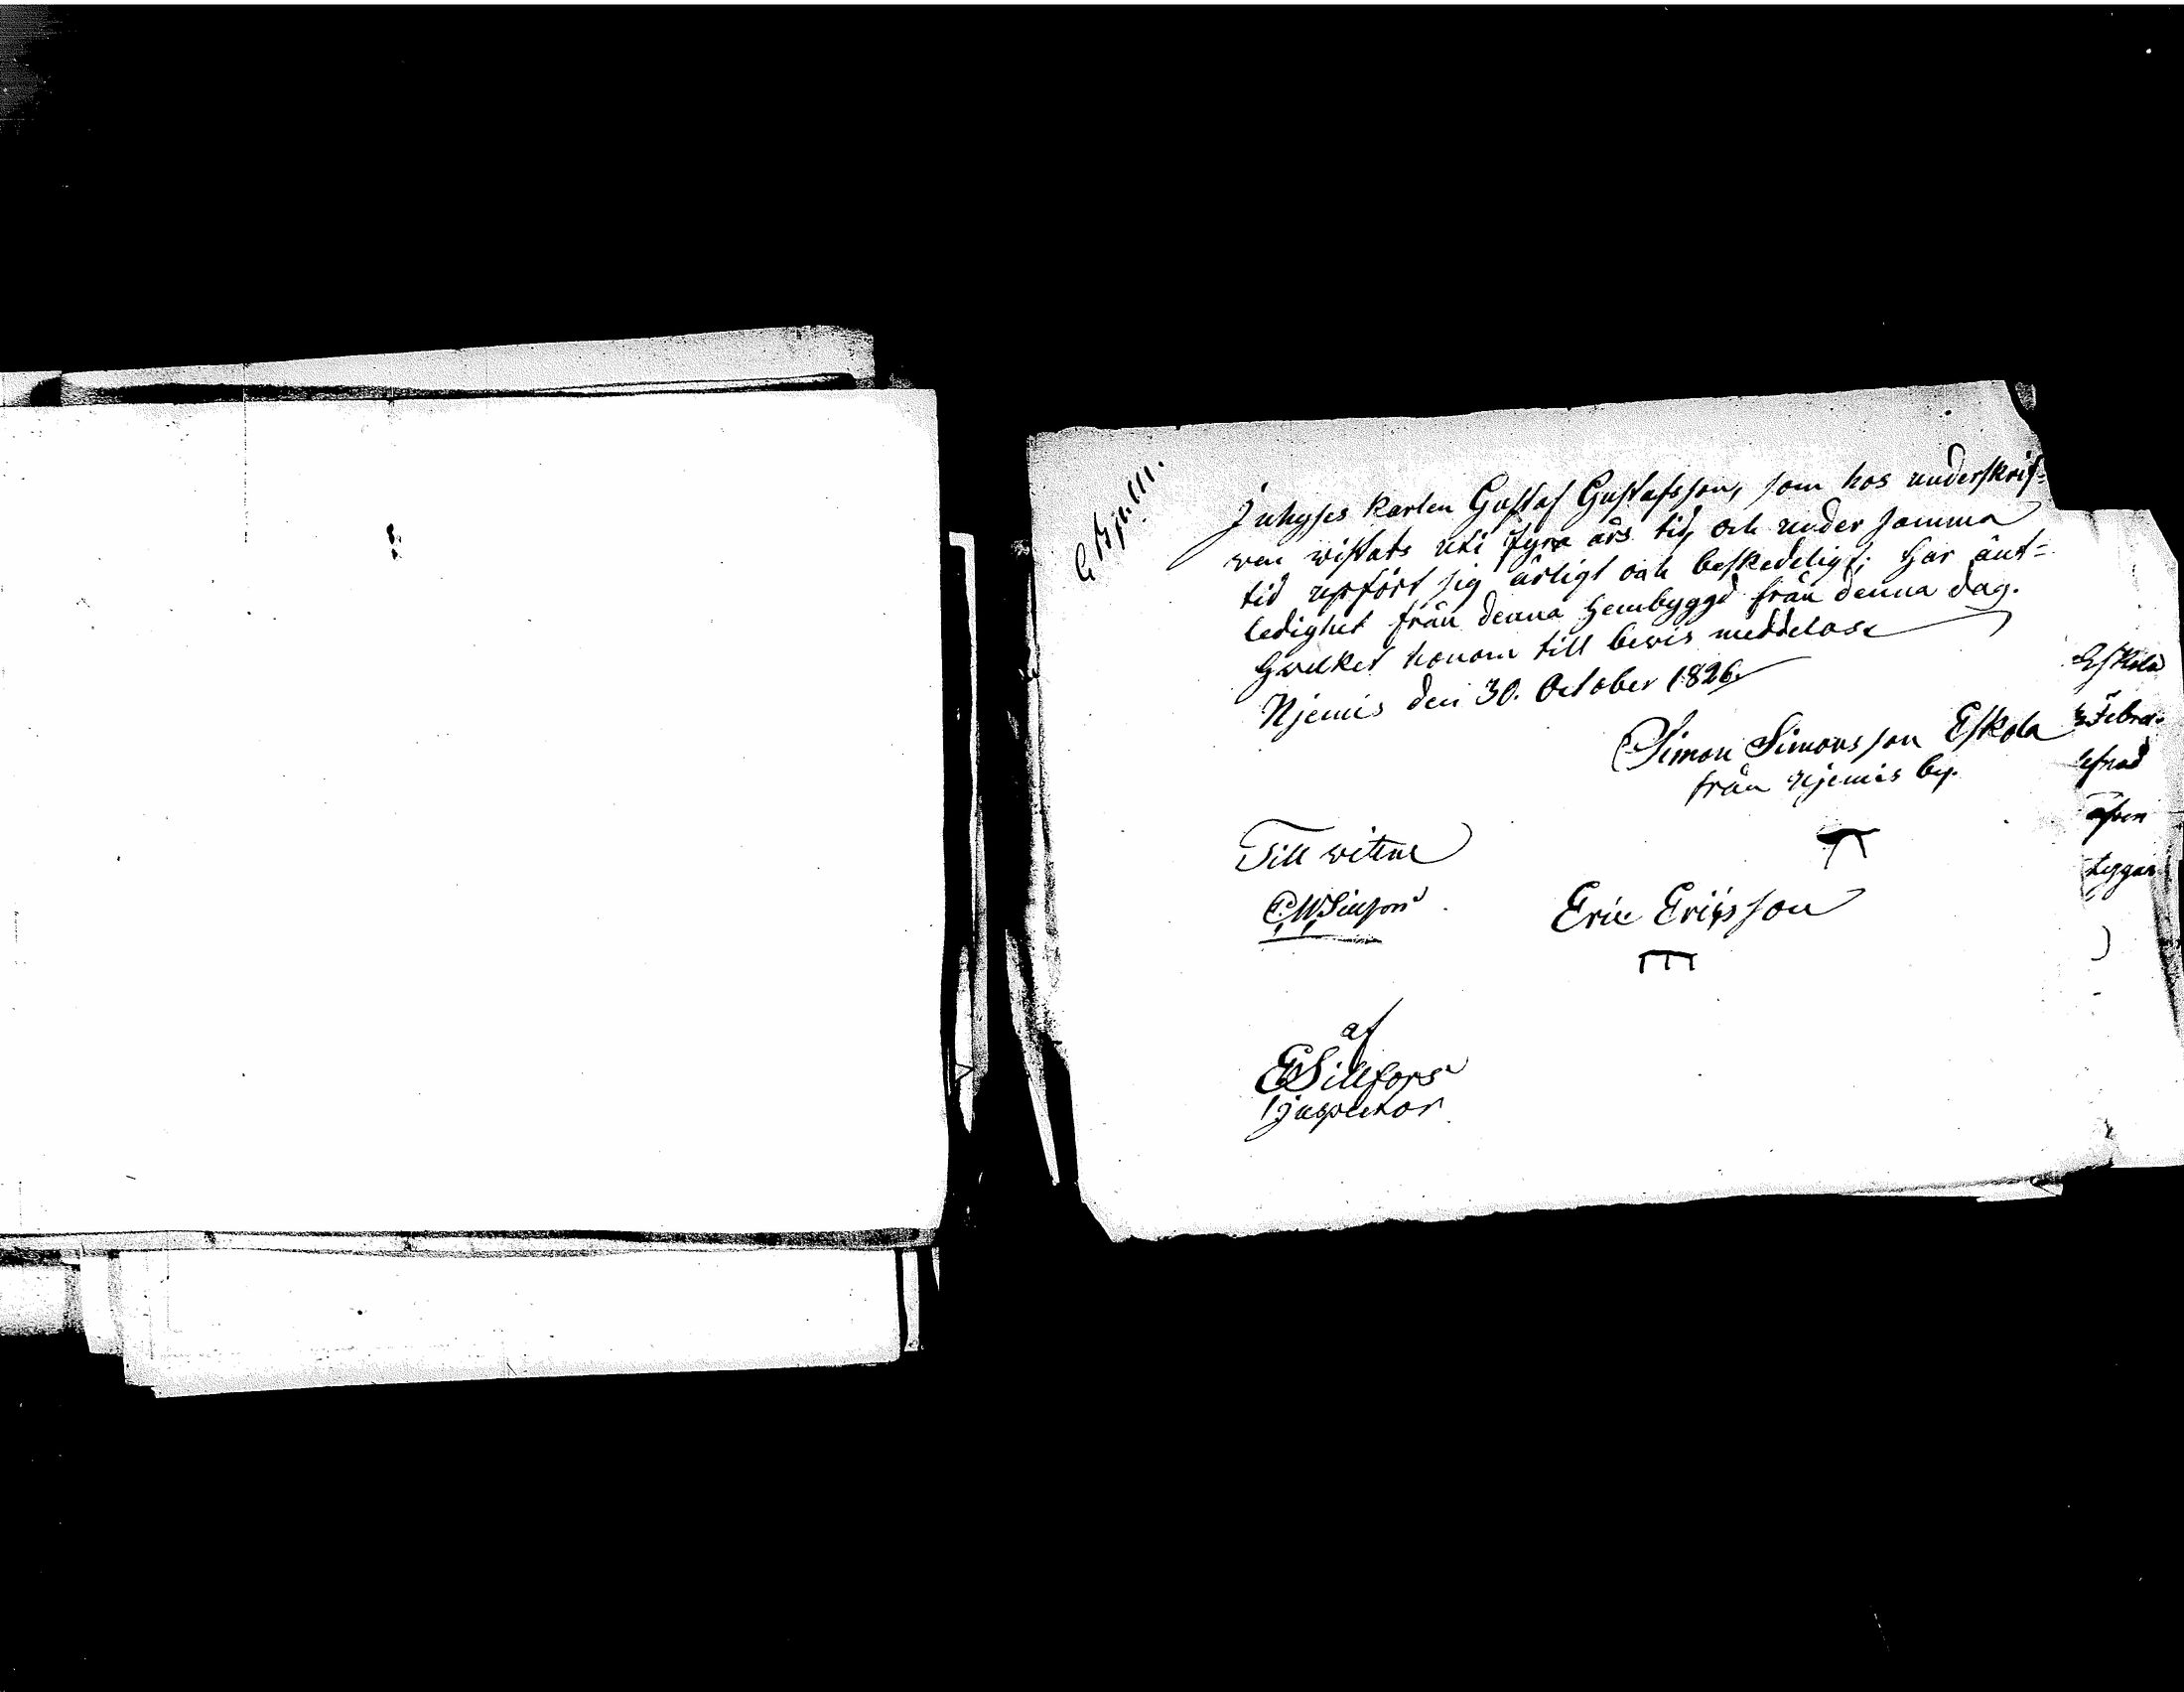 Inhyses Karlen Gustaf Gustafsson, som hos underskrif=
ven wistats uti fyra års tid, och under samma
tid upfört sig ärligt och beskedeligt; har änt=
ledighet från denna Hembyggd från denna dag.
Hwilket honom till bewis meddelas
Njemis den 30. October 1826.
Simon Simonsson Eskola
från Njemis by.
Till witne
Eric Ericsson
af
Sillfors
Inspector
Eskola
Febru-